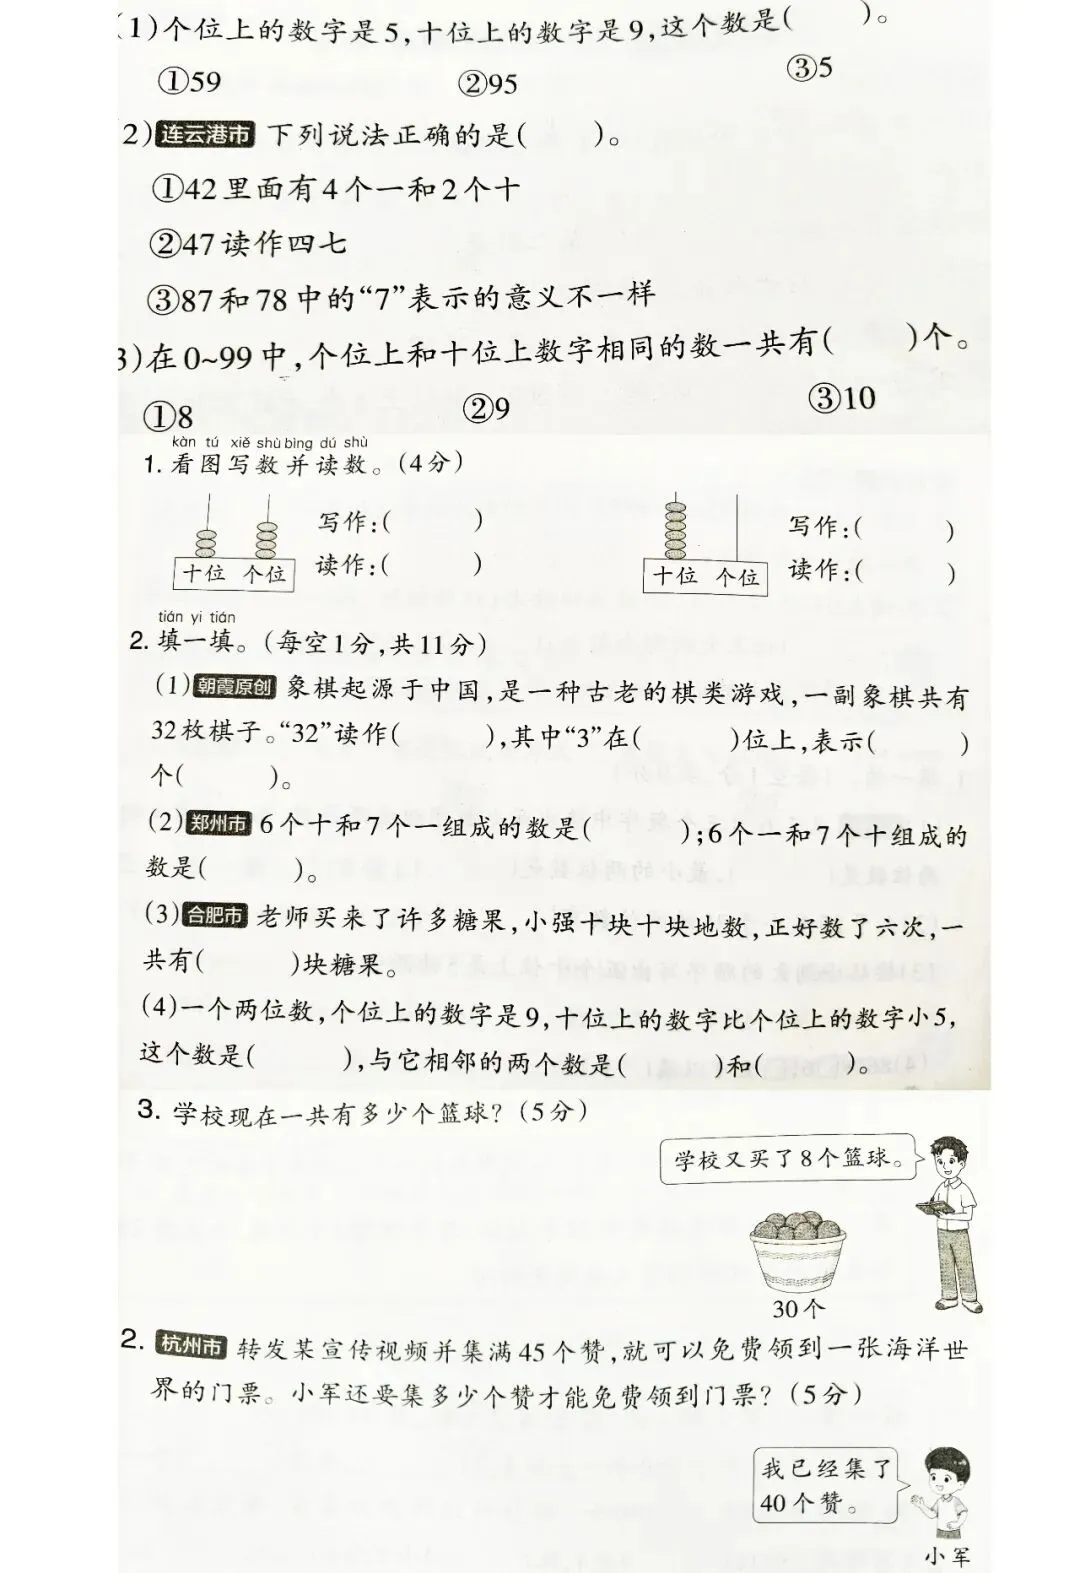 (1)个位上的数字是5,十位上的数字是9,这个数是(　　)。
①59　②95　③5
2)连云港市 下列说法正确的是(　　)。
①42里面有4个一和2个十
②47读作四七
③87和78中的“7”表示的意义不一样
3)在0~99中,个位上和十位上数字相同的数一共有(　　)个。
①8　②9　③10
kàn tú xiě shù bìng dú shù
1. 看图写数并读数。(4分)
写作:(　　)　写作:(　　)
读作:(　　)　读作:(　　)
十位 个位　十位 个位
tián yi tián
2. 填一填。(每空1分,共11分)
(1)朝霞原创 象棋起源于中国,是一种古老的棋类游戏,一副象棋共有
32枚棋子。“32”读作(　　),其中“3”在(　　)位上,表示(　　)
个(　　)。
(2)郑州市 6个十和7个一组成的数是(　　);6个一和7个十组成的
数是(　　)。
(3)合肥市 老师买来了许多糖果,小强十块十块地数,正好数了六次,一
共有(　　)块糖果。
(4)一个两位数,个位上的数字是9,十位上的数字比个位上的数字小5,
这个数是(　　),与它相邻的两个数是(　　)和(　　)。
3. 学校现在一共有多少个篮球?(5分)
学校又买了8个篮球。
30个
2. 杭州市 转发某宣传视频并集满45个赞,就可以免费领到一张海洋世
界的门票。小军还要集多少个赞才能免费领到门票?(5分)
我已经集了
40个赞。
小军